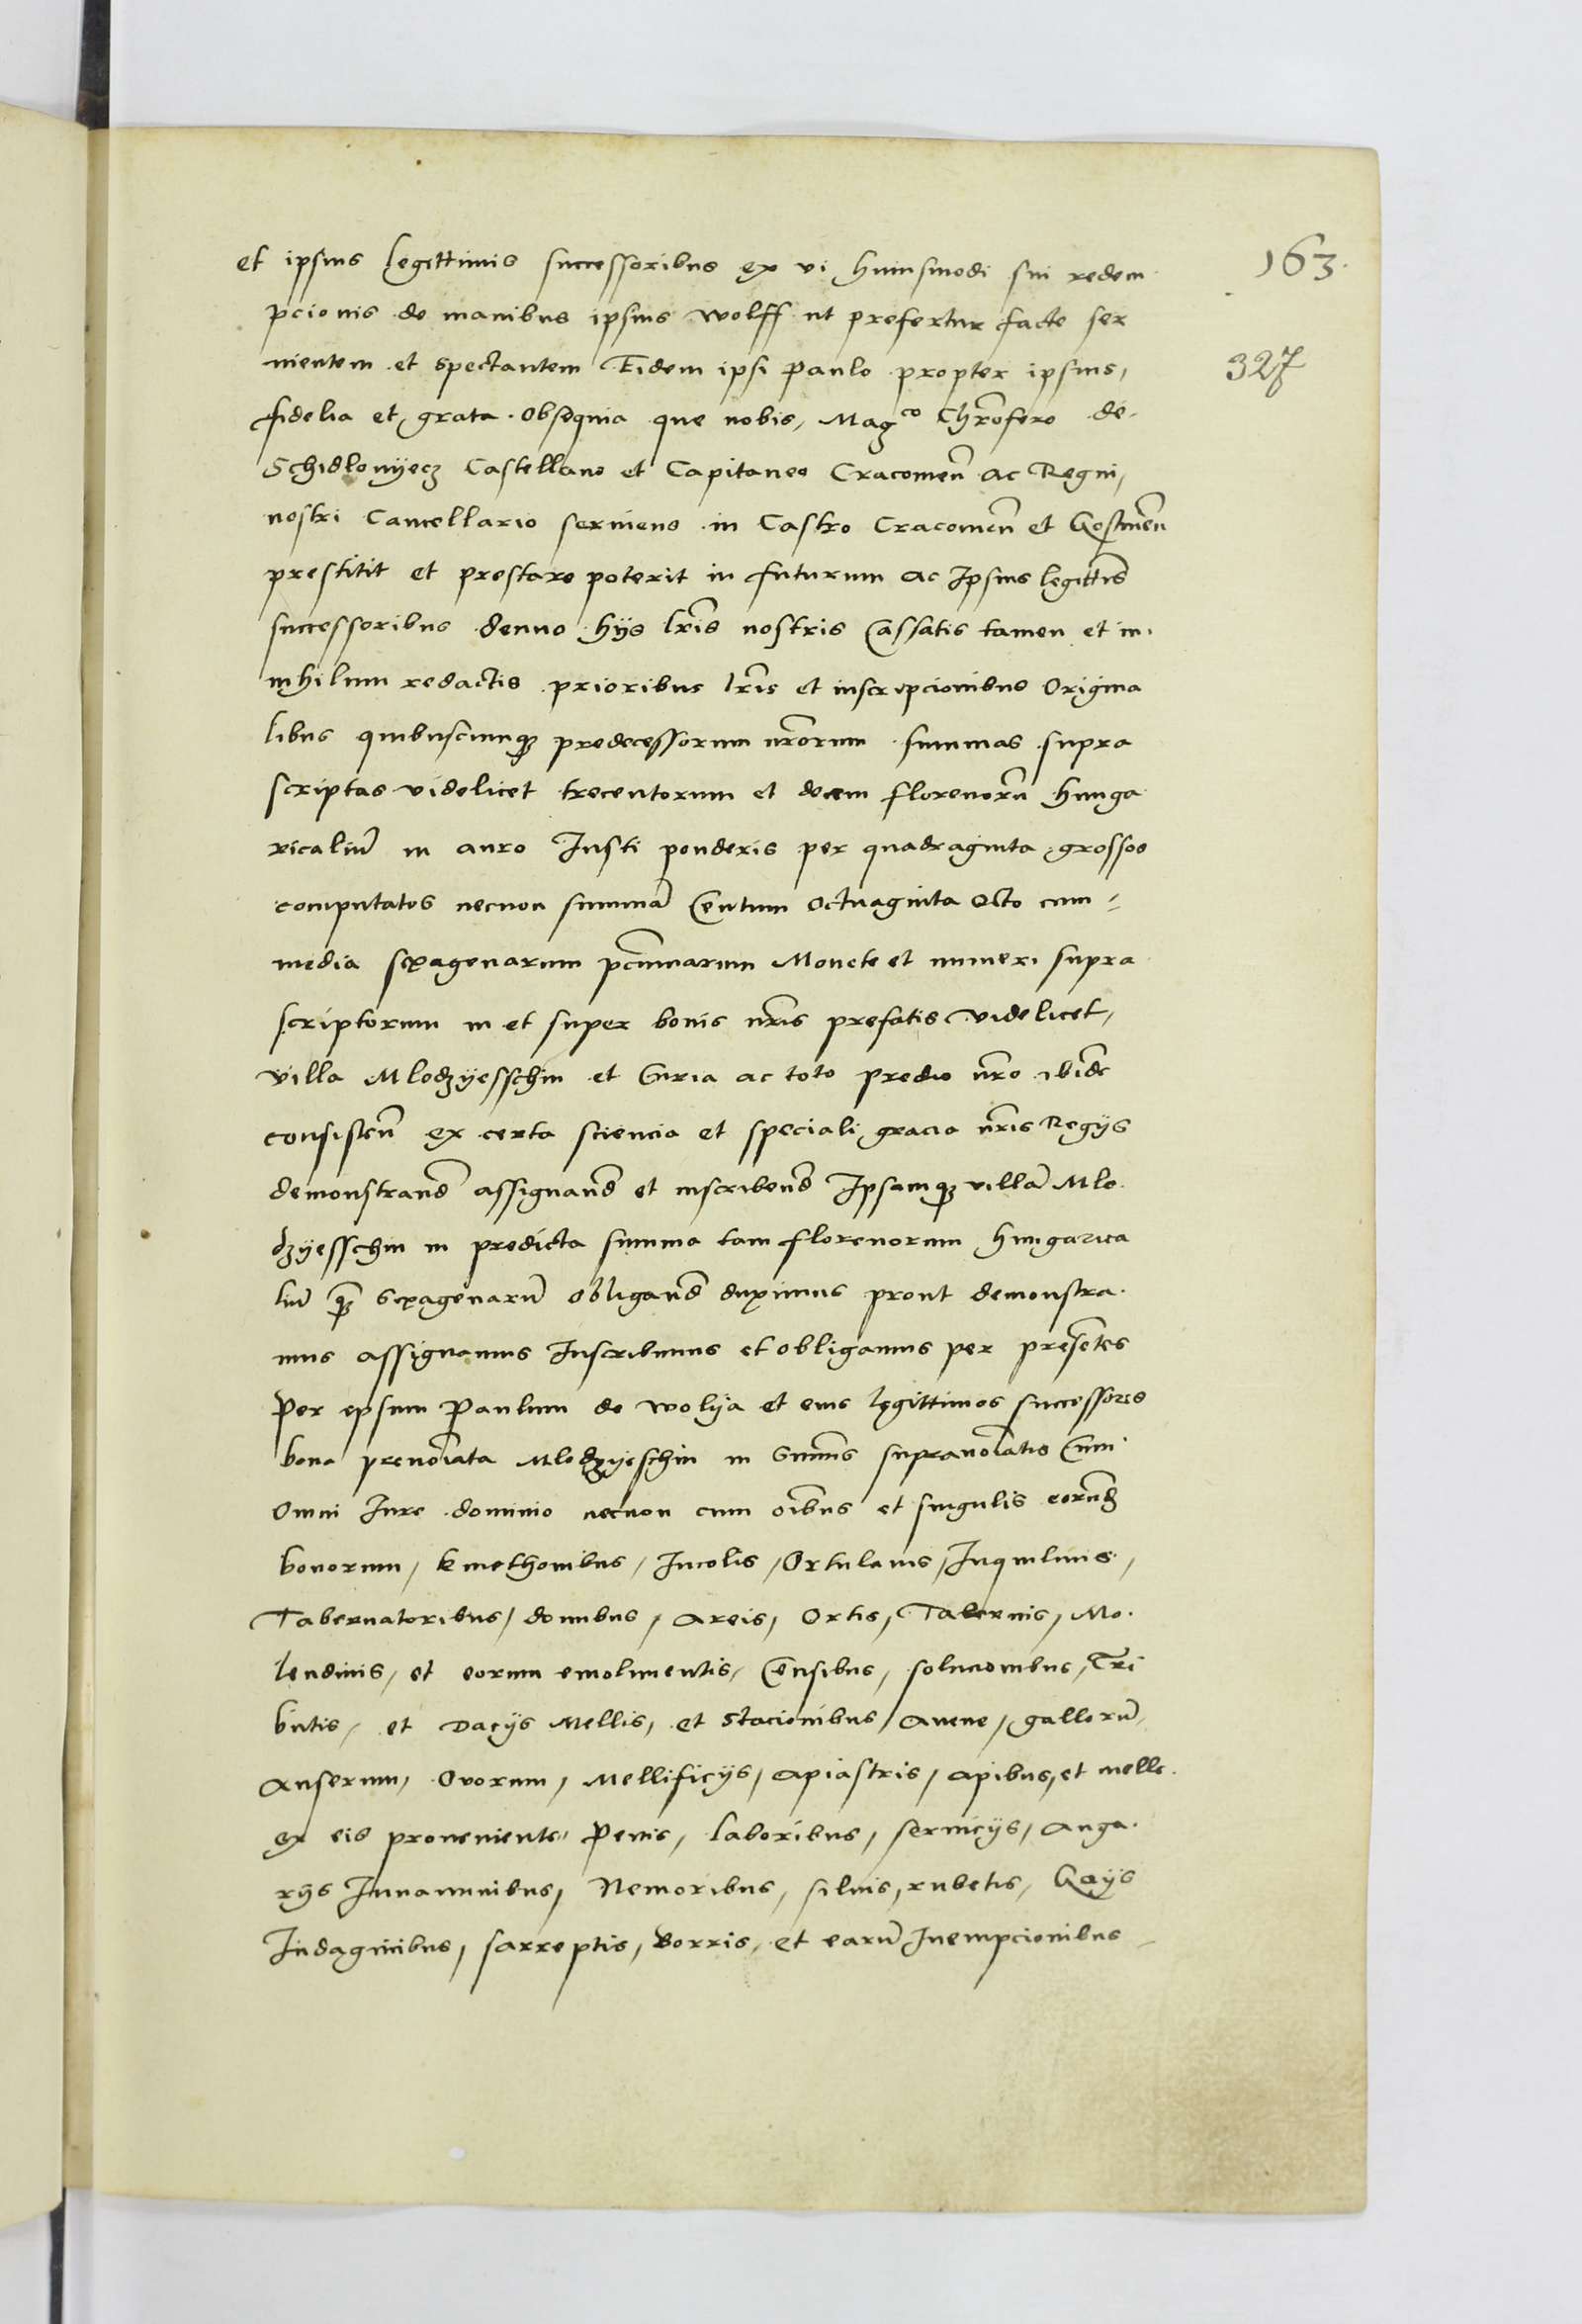 163.
et ipsius legittimis successoribus ex vi huiusmodi sui redem
pcionis de manibus ipsius wolff ut prefertur facte ser
vientem et spectantem Eidem ipsi Paulo propter ipsius,
327
fidelia et grata obsequia que nobis, Mag<sup>co</sup> Chrofero de
Schidlovyecz Castellano et Capitaneo Cracovien ac Regni,
nostri Cancellario serviens in Castro Cracovien et Gostinen
prestitit et prestare poterit in futurum ac Ipsius legittis
successoribus denuo hijs lris nostris Cassatis tamen et in
nihilum redactis prioribus lris et inscripcionibus Origina
libus quibuscunqz predecessorum nrorum summas supra
scriptas videlicet trecentorum et decem florenoru hunga
ricaliu in auro Justi ponderis per quadraginta grossos
computatos necnon summa Centum Octuaginta Octo cum =
media sexagenarum pecuniarum Monete et numeri supra
scriptorum in et super bonis nris prefatis videlicet,
villa Mlodzyesschin et Curia ac toto predio nro ibide
consisten ex certa sciencia et speciali gracia nris Regijs
demonstrand assignand et inscribend Ipsamqz villa Mlo
dzyesschin in predicta summa tam florenorum hungarica
liu qz sexagenaru obligand duximus prout demonstra
mus assignamus Inscribimus et obligamus per presentes
Per ipsum Paulum de wolya et eius legittimos successores
bona prenoiata Mlodzyeschin in summis supranoiatis Cum
Omni Jure dominio necnon cum oibus et singulis eorund
bonorum, kmethonibus, Incolis, Ortulanis, Inquilinis,
Tabernatoribus, domibus, Areis, Ortis, Tabernis, Mo
lendinis, et eorum emolumentis, Censibus, solucionibus, Tri
butis, et Dacijs Mellis, et Stacionibus Avene, galloru,
Anserum, Ovorum, Mellificijs, Apiastris, Apibus, et melle
ex eis proveniente, Penis, laboribus, servicijs, Anga
rijs Juvaminibus, Nemoribus, silvis, rubetis, Gayis
Indaginibus, sarreptis, Borris, et earu Inempcionibus